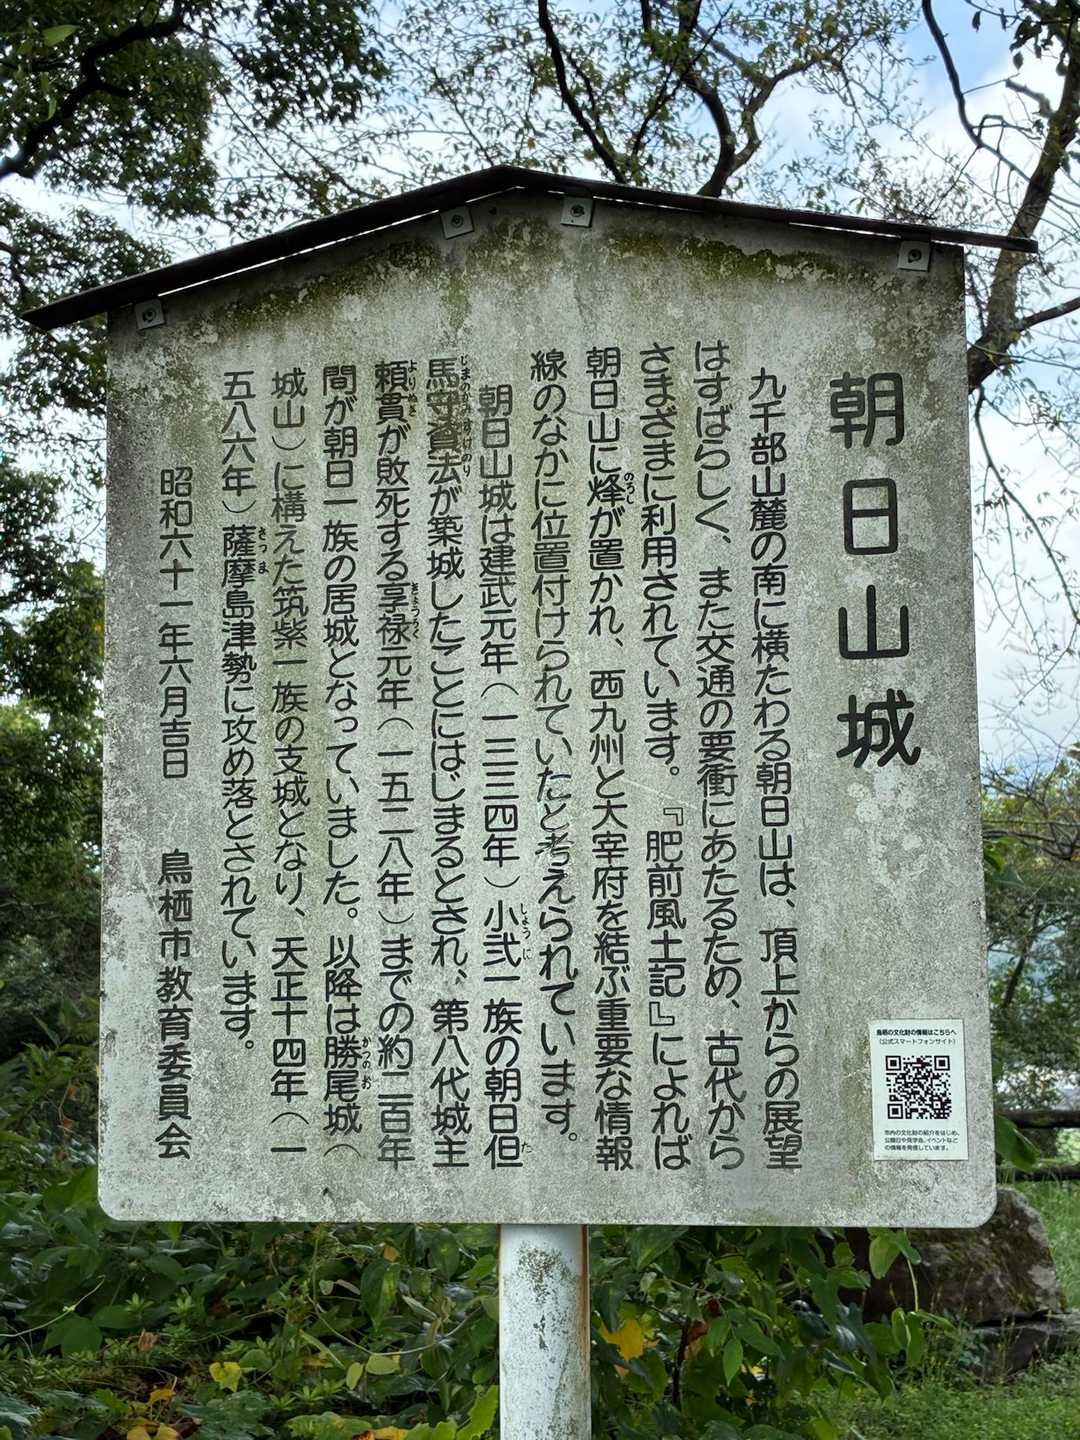 朝日山城
九千部山麓の南に横たわる朝日山は、頂上からの展望
はすばらしく、また交通の要衝にあたるため、古代から
さまざまに利用されています。『肥前風土記』によれば
朝日山に烽が置かれ、西九州と大宰府を結ぶ重要な情報
のろし
線のなかに位置付けられていたと考えられています。
朝日山城は建武元年(一三三四年)小弐一族の朝日但
しょうに
た
馬守資法が築城したことにはじまるとされ、第八代城主
じまのかみすけのり
頼貫が敗死する享禄元年(一五二八年)までの約二百年
よりぬき
きょうろく
間が朝日一族の居城となっていました。以降は勝尾城(
かつのお
城山)に構えた筑紫一族の支城となり、天正十四年(一
五八六年)薩摩島津勢に攻め落とされています。
さつま
昭和六十一年六月吉日 鳥栖市教育委員会
鳥栖の文化財の情報はこちらへ
(公式スマートフォンサイト)
市内の文化財の紹介をはじめ、
公開日や見学会、イベントなど
の情報を発信しています。